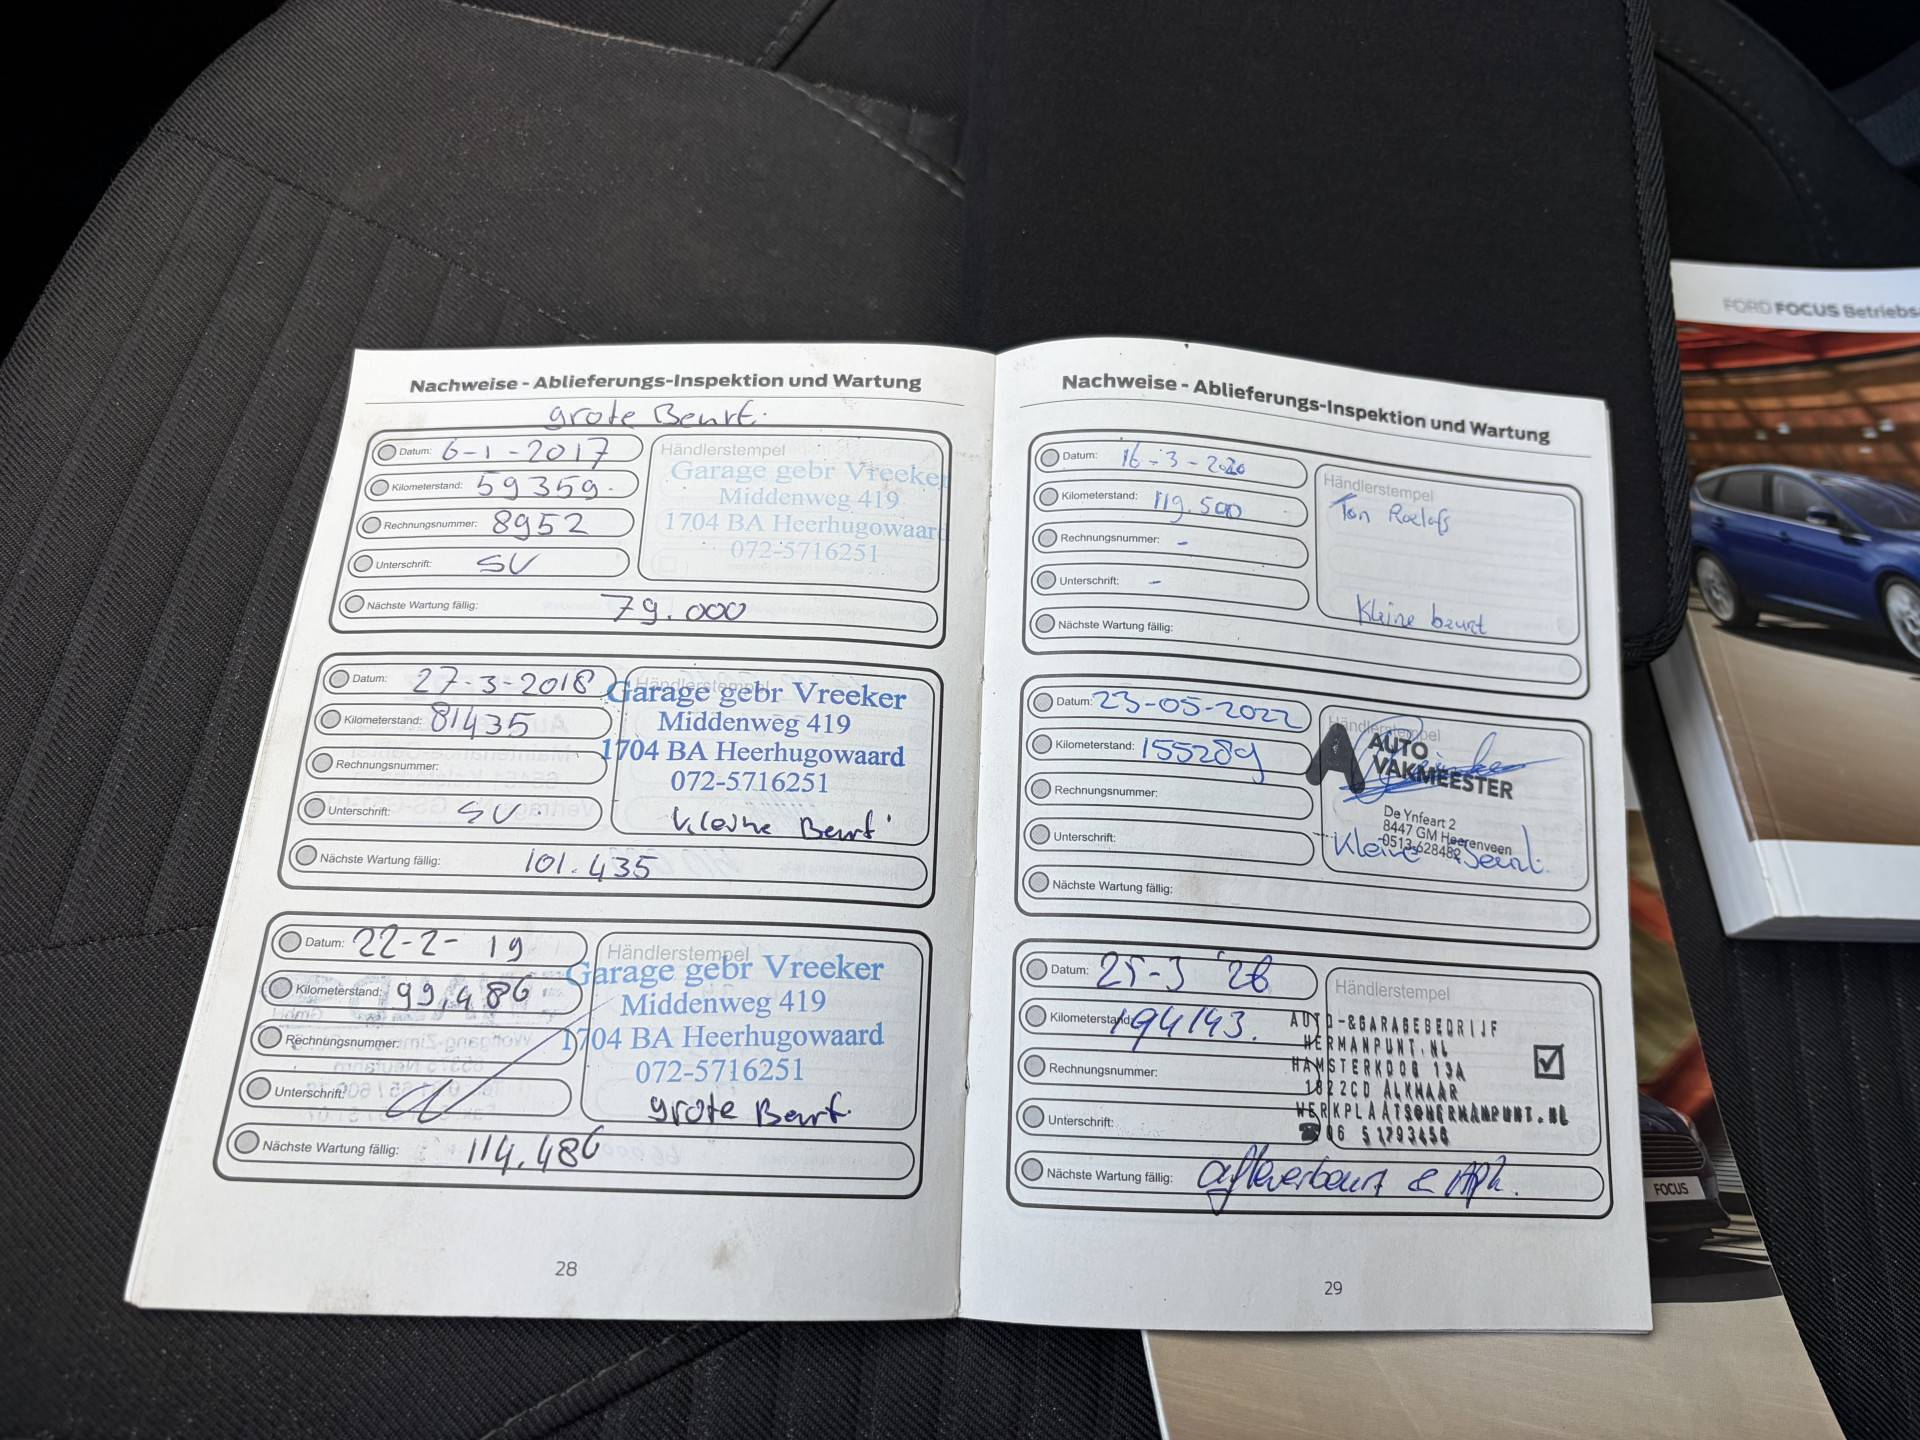 Nachweise - Ablieferungs-Inspektion und Wartung
grote Beurt.
Datum: 6-1-2017
Kilometerstand: 59359.
Rechnungsnummer: 8952
Unterschrift: SV
Händlerstempel
Garage gebr Vreeker
Middenweg 419
1704 BA Heerhugowaard
072-5716251
Nächste Wartung fällig: 79.000
Datum: 27-3-2018
Kilometerstand: 81435
Rechnungsnummer:
Unterschrift: SV.
Händlerstempel
Garage gebr Vreeker
Middenweg 419
1704 BA Heerhugowaard
072-5716251
kleine Beurt
Nächste Wartung fällig: 101.435
Datum: 22-2- 19
Kilometerstand: 99.486
Rechnungsnummer:
Unterschrift:
Händlerstempel
Garage gebr Vreeker
Middenweg 419
1704 BA Heerhugowaard
072-5716251
grote Beurt.
Nächste Wartung fällig: 114.486
28
Nachweise - Ablieferungs-Inspektion und Wartung
Datum: 16-3-2020
Kilometerstand: 119.500
Rechnungsnummer: -
Unterschrift: -
Händlerstempel
Ton Roelofs
Kleine beurt
Nächste Wartung fällig:
Datum: 23-05-2022
Kilometerstand: 155289
Rechnungsnummer:
Unterschrift:
Händlerstempel
A AUTO
VAKMEESTER
De Ynfeart 2
8447 GM Heerenveen
0513-628482
Kleine Beurt.
Nächste Wartung fällig:
Datum: 25-3 '26
Kilometerstand: 194143.
Rechnungsnummer:
Unterschrift:
Händlerstempel
AUTO-&GARAGEBEDRIJF
HERMANPUNT.NL
HAMSTERKOOG 13A
1822CD ALKMAAR
WERKPLAATS@HERMANPUNT.NL
06 51793456
Nächste Wartung fällig: afleverbeurt & Apk.
29
FORD FOCUS Betriebs
FOCUS